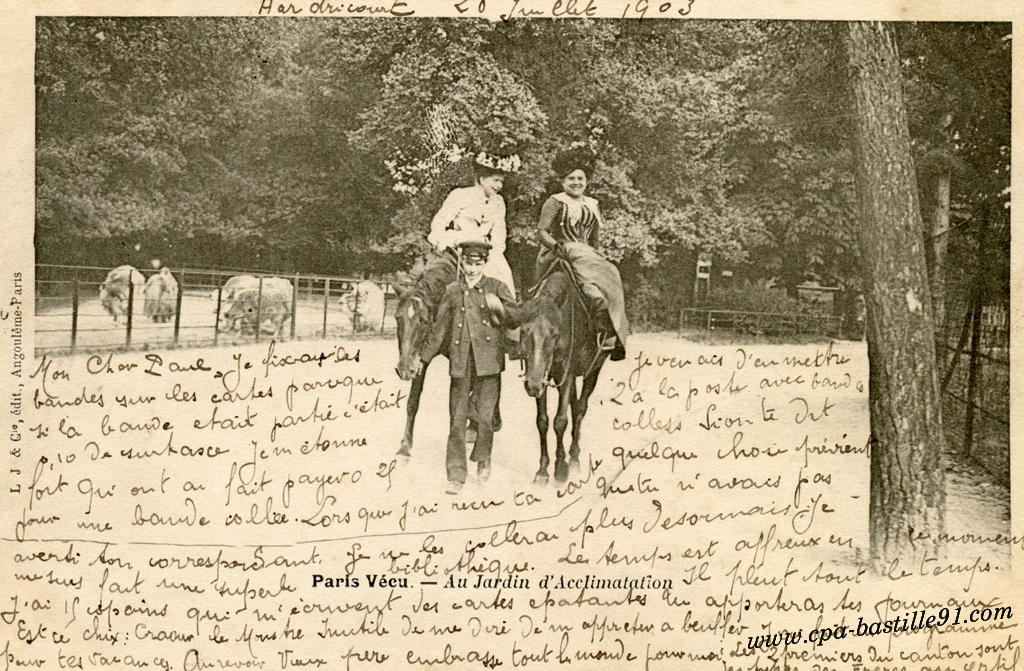 Hardricourt 20 Juillet 1903
L. J & Cie, édit., Angoulême-Paris
Mon Cher Paul, Je fixais les
bandes sur les cartes parceque
si la bande etait partie c'était
0,10 de surtaxe Jem étonne
fort qui ont au fait payer 0 25
pour une bande collée. Lorsque j'ai recu ta carte
Je venais d'en mettre
2 a la poste avec bandes
collees Si on te dit
quelque chose prévient
quetu n'avais pas
averti ton correspondant. Je ne les collerai plus desormais. Je
me suis fait une superbe bibliothèque. Le temps est affreux en ce moment
Paris Vécu. — Au Jardin d'Acclimatation
Il pleut tout le temps.
J'ai 15 copains qui m'écrivent des cartes epatantes Tu apporteras tes journaux
Est ce chix: Craour le Monstre Inutile de me dire de m appreter a
programme
pour tes vacances. Au revoir Vieux frere embrasse tout le monde pour moi Les 3 premiers du canton sont
www.cpa-bastille91.com